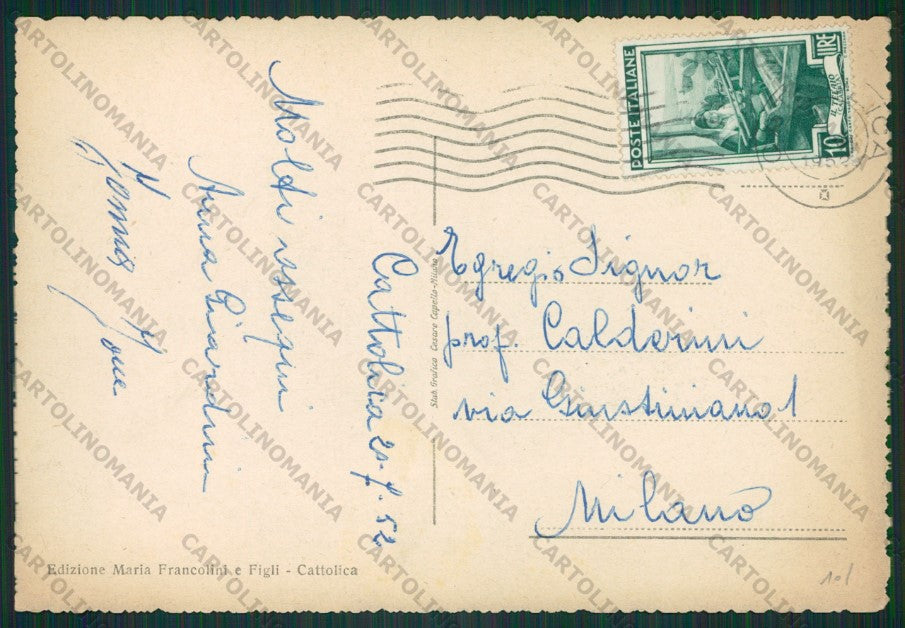 Cattolica 21.7.52
Molti ossequi
Anna Giardini
Egregio Signor
prof. Calderini
via Giustiniano 1
Milano
POSTE ITALIANE
LIRE
10
Stab. Grafico Cesare Capello-Milano
Edizione Maria Francolini e Figli - Cattolica
101
CARTOLINOMANIA